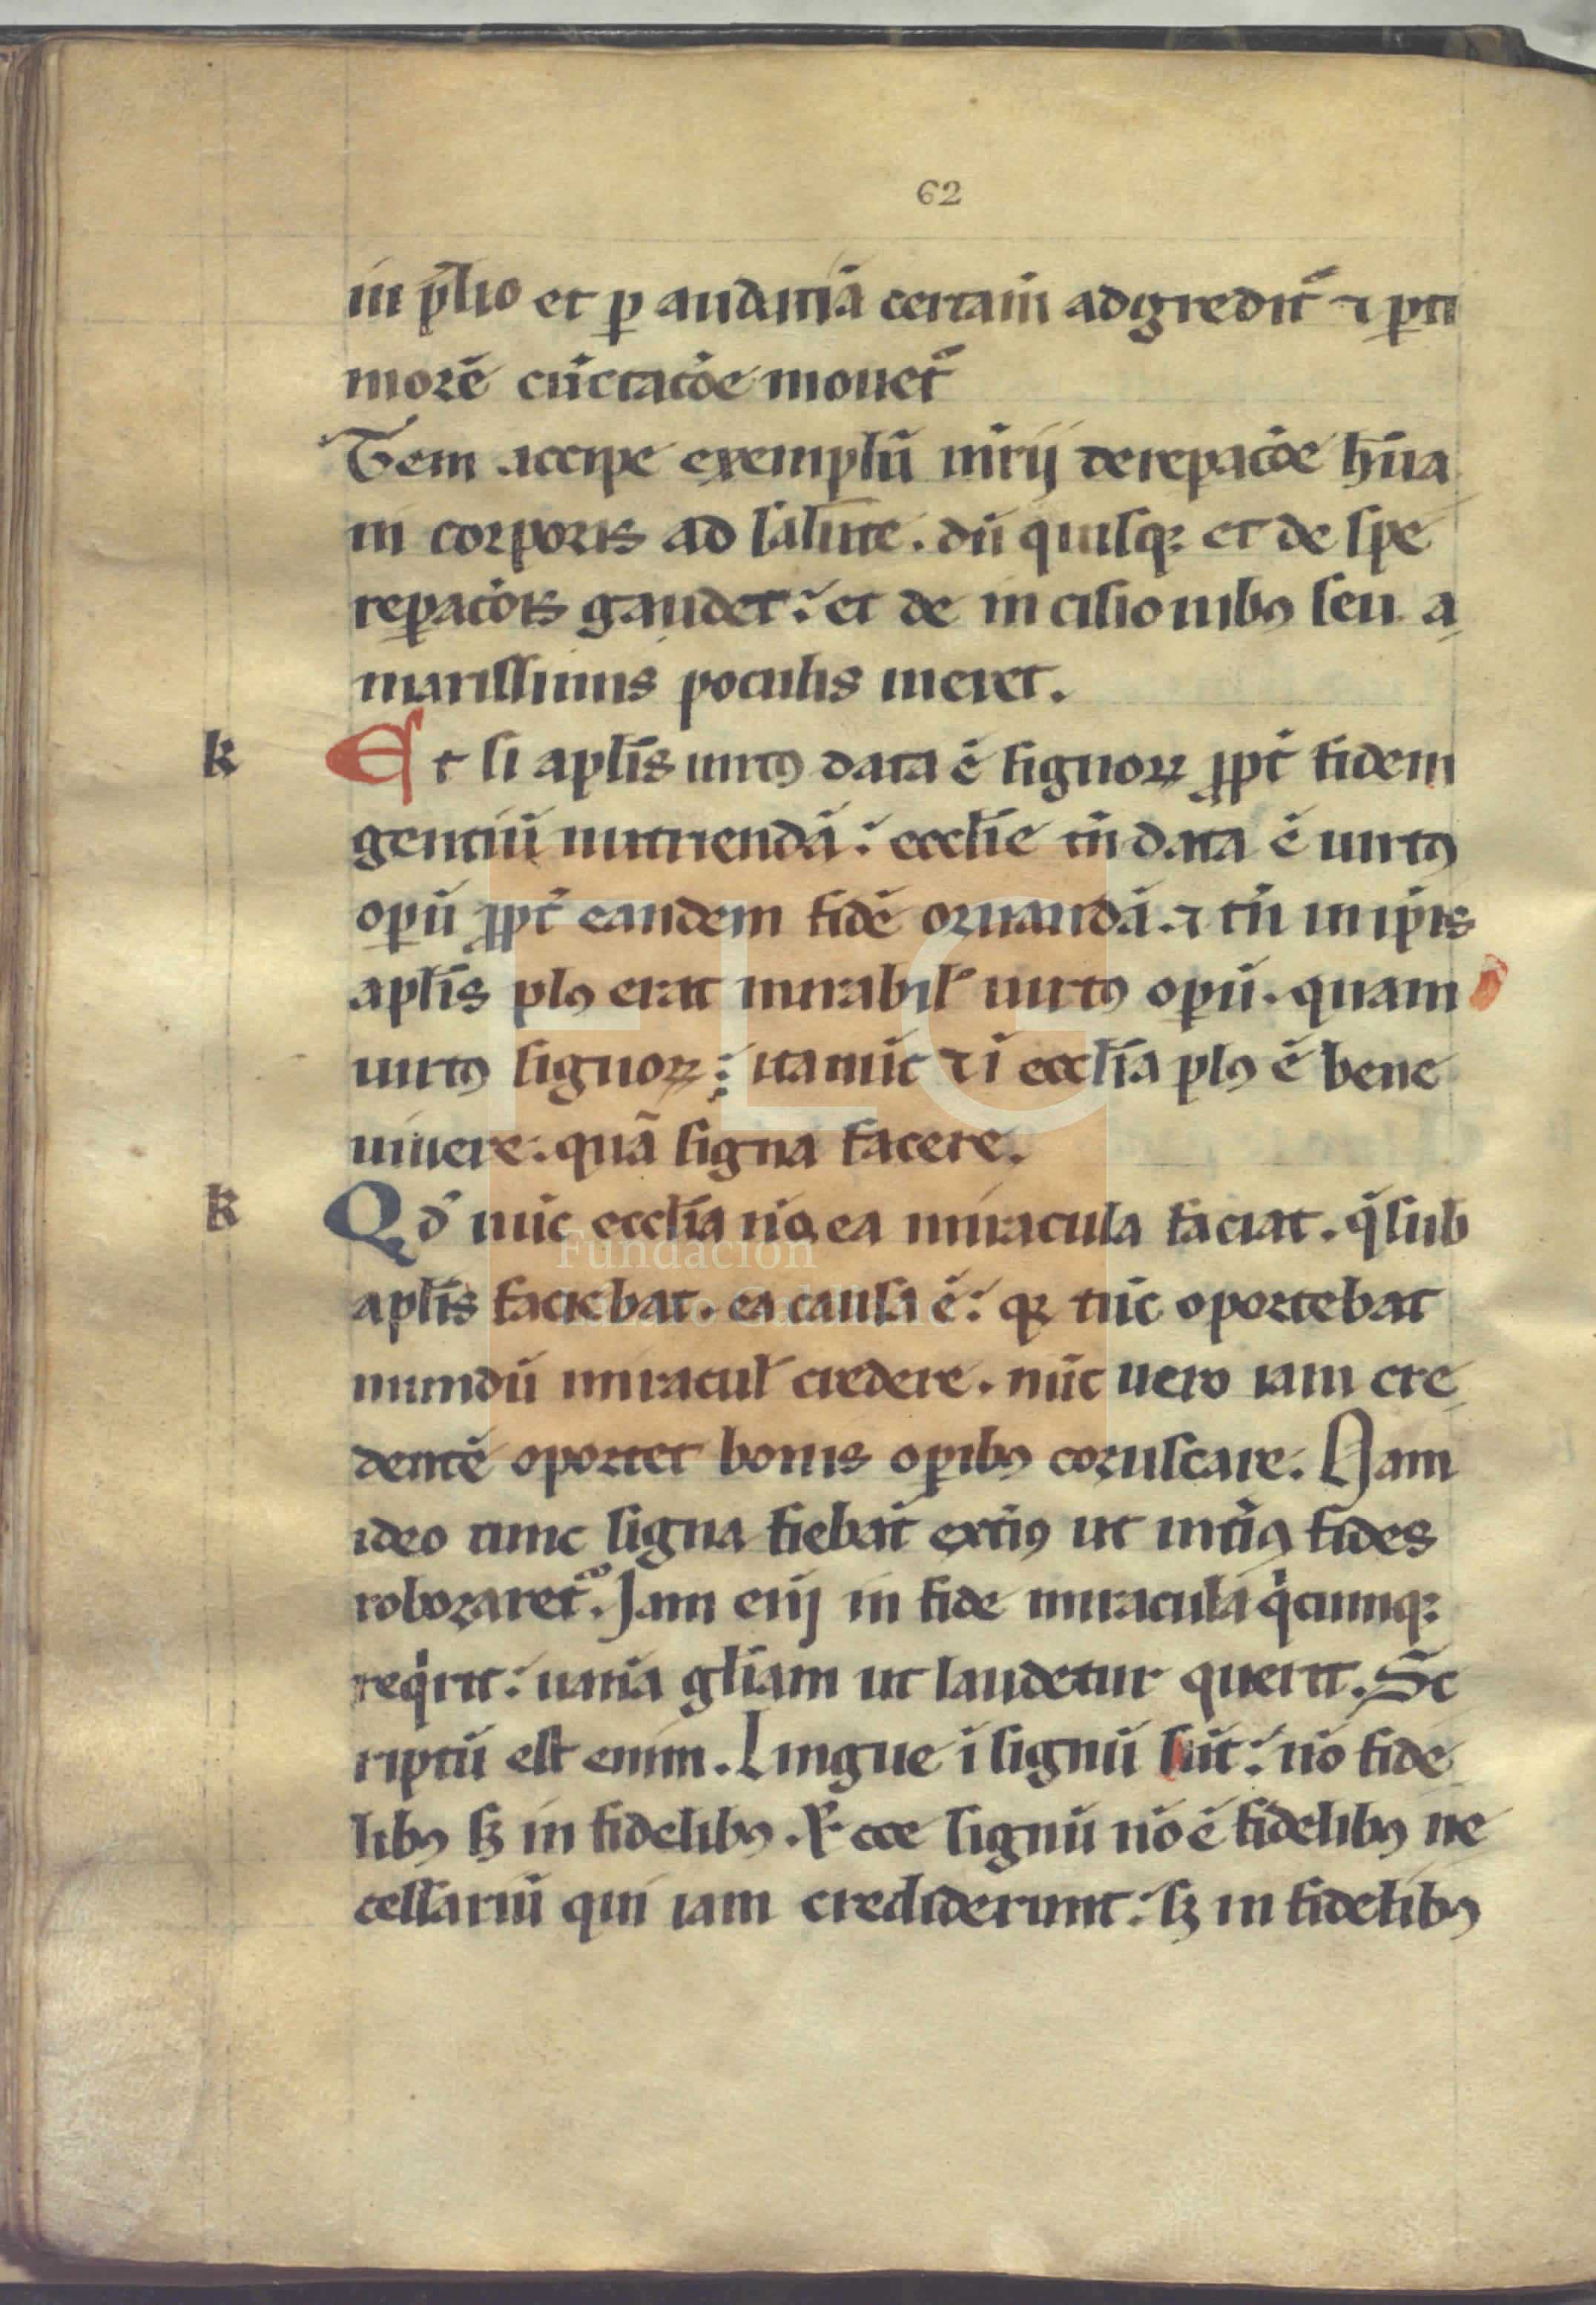 62
in p̄lio et ꝑ audatiā certam̄ adgredit᷑ ⁊ ꝑ ti
morē cūctatōe mouet᷑
Item accipe exemplū nr̄ij de repatōe hūa
ni corporis ad salutē. dū quisq; et de spe
reꝑatōis gaudet: et de incisionibꝰ seu a
marissimis poculis meret.
k Et si apl̄is uirtꝰ data ē signoꝝ ꝓpt̄ fidem
gentiū nutriendā: ecclīe tn̄ data ē uirtꝰ
oꝑū ꝓpt̄ eandem fidē ornandā. ⁊ tn̄ in ip̄is
apl̄is plꝰ erat mirabil᷑ uirtꝰ oꝑū. quam
uirtꝰ signoꝝ: ita nūc ⁊ ī ecclīa plꝰ ē bene
uiuere. quā signa facere.
k Qd̄ nūc ecclīa nō ea miracula faciat. q̄ sub
apl̄is faciebat. ea causa ē: qꝛ tūc oportebat
mundū miracul᷑ credere. nūc uero iam cre
dentē oportet bonis oꝑibꝰ coruscare. Nam
ideo tunc signa fiebāt extiꝰ ut intiꝰ fides
roboraret᷑. Iam enī in fide miracula q̇cumq;
req̇rit: uana gl̄iam ut laudetur querit. Sc
riptū est enim. Lingue ī signū sūt: nō fide
libꝰ sꝫ in fidelibꝰ. Ecce signū nō ē fidelibꝰ ne
cessariū qui iam crediderunt: sꝫ in fidelibꝰ
FLG
Fundación
Lázaro Galdiano